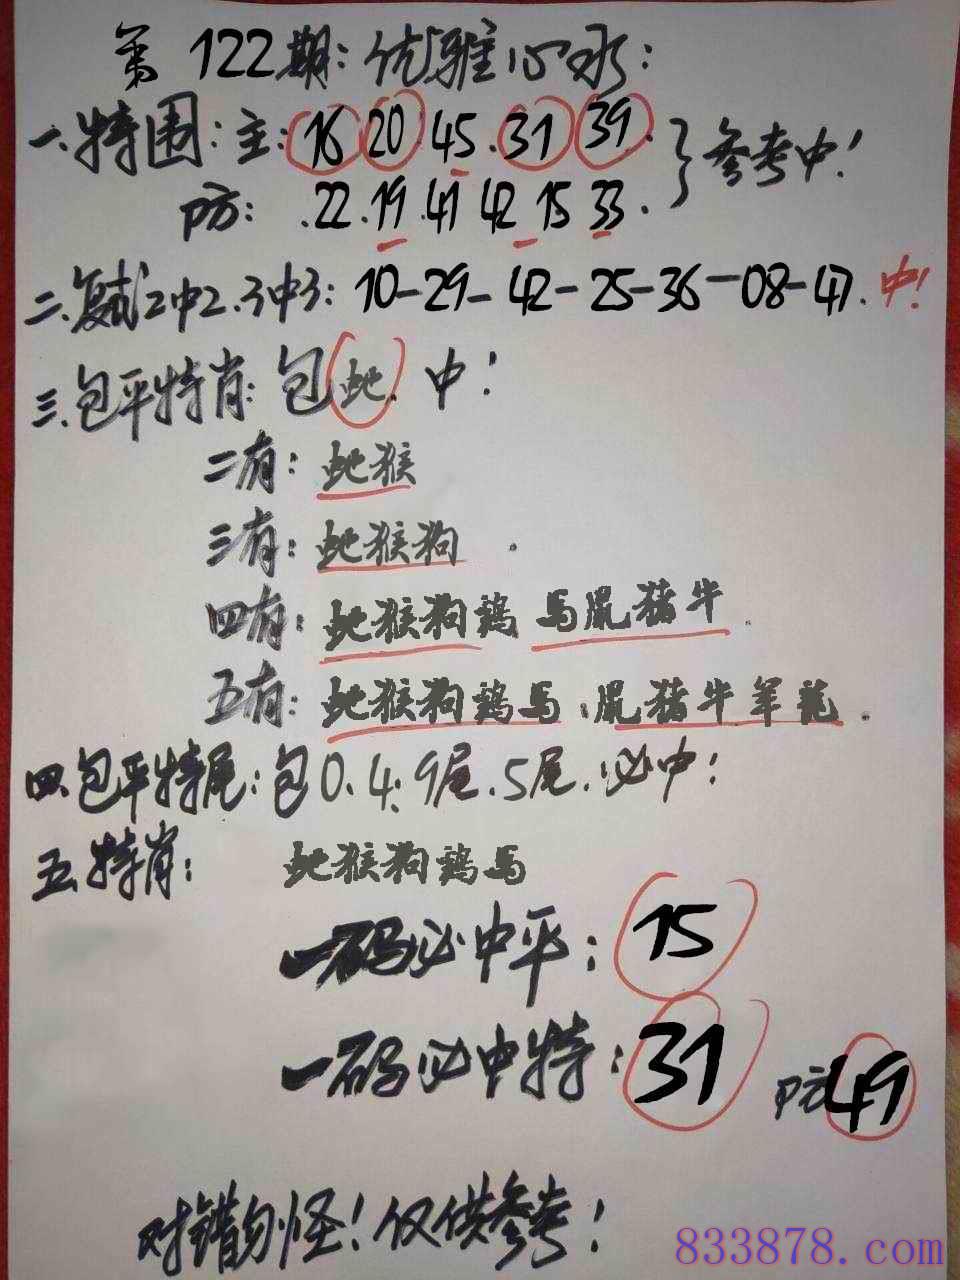 第122期:优雅心水:
一.特围:主:16 20 45.31 39.
防:.22.19.41 42 15 33.
}参考中!
二.复试2中2.3中3:10-29-42-25-36-08-47.中!
三.包平特肖:包蛇.中!
二有:蛇猴
三有:蛇猴狗.
四有:蛇猴狗鸡 马鼠猪牛.
五有:蛇猴狗鸡马.鼠猪牛羊龙.
四.包平特尾:包0.4:9尾.5尾.必中!
五.特肖:蛇猴狗鸡马
一码必中平:15
一码必中特:31 防49
对错勿怪!仅供参考!
833878.com